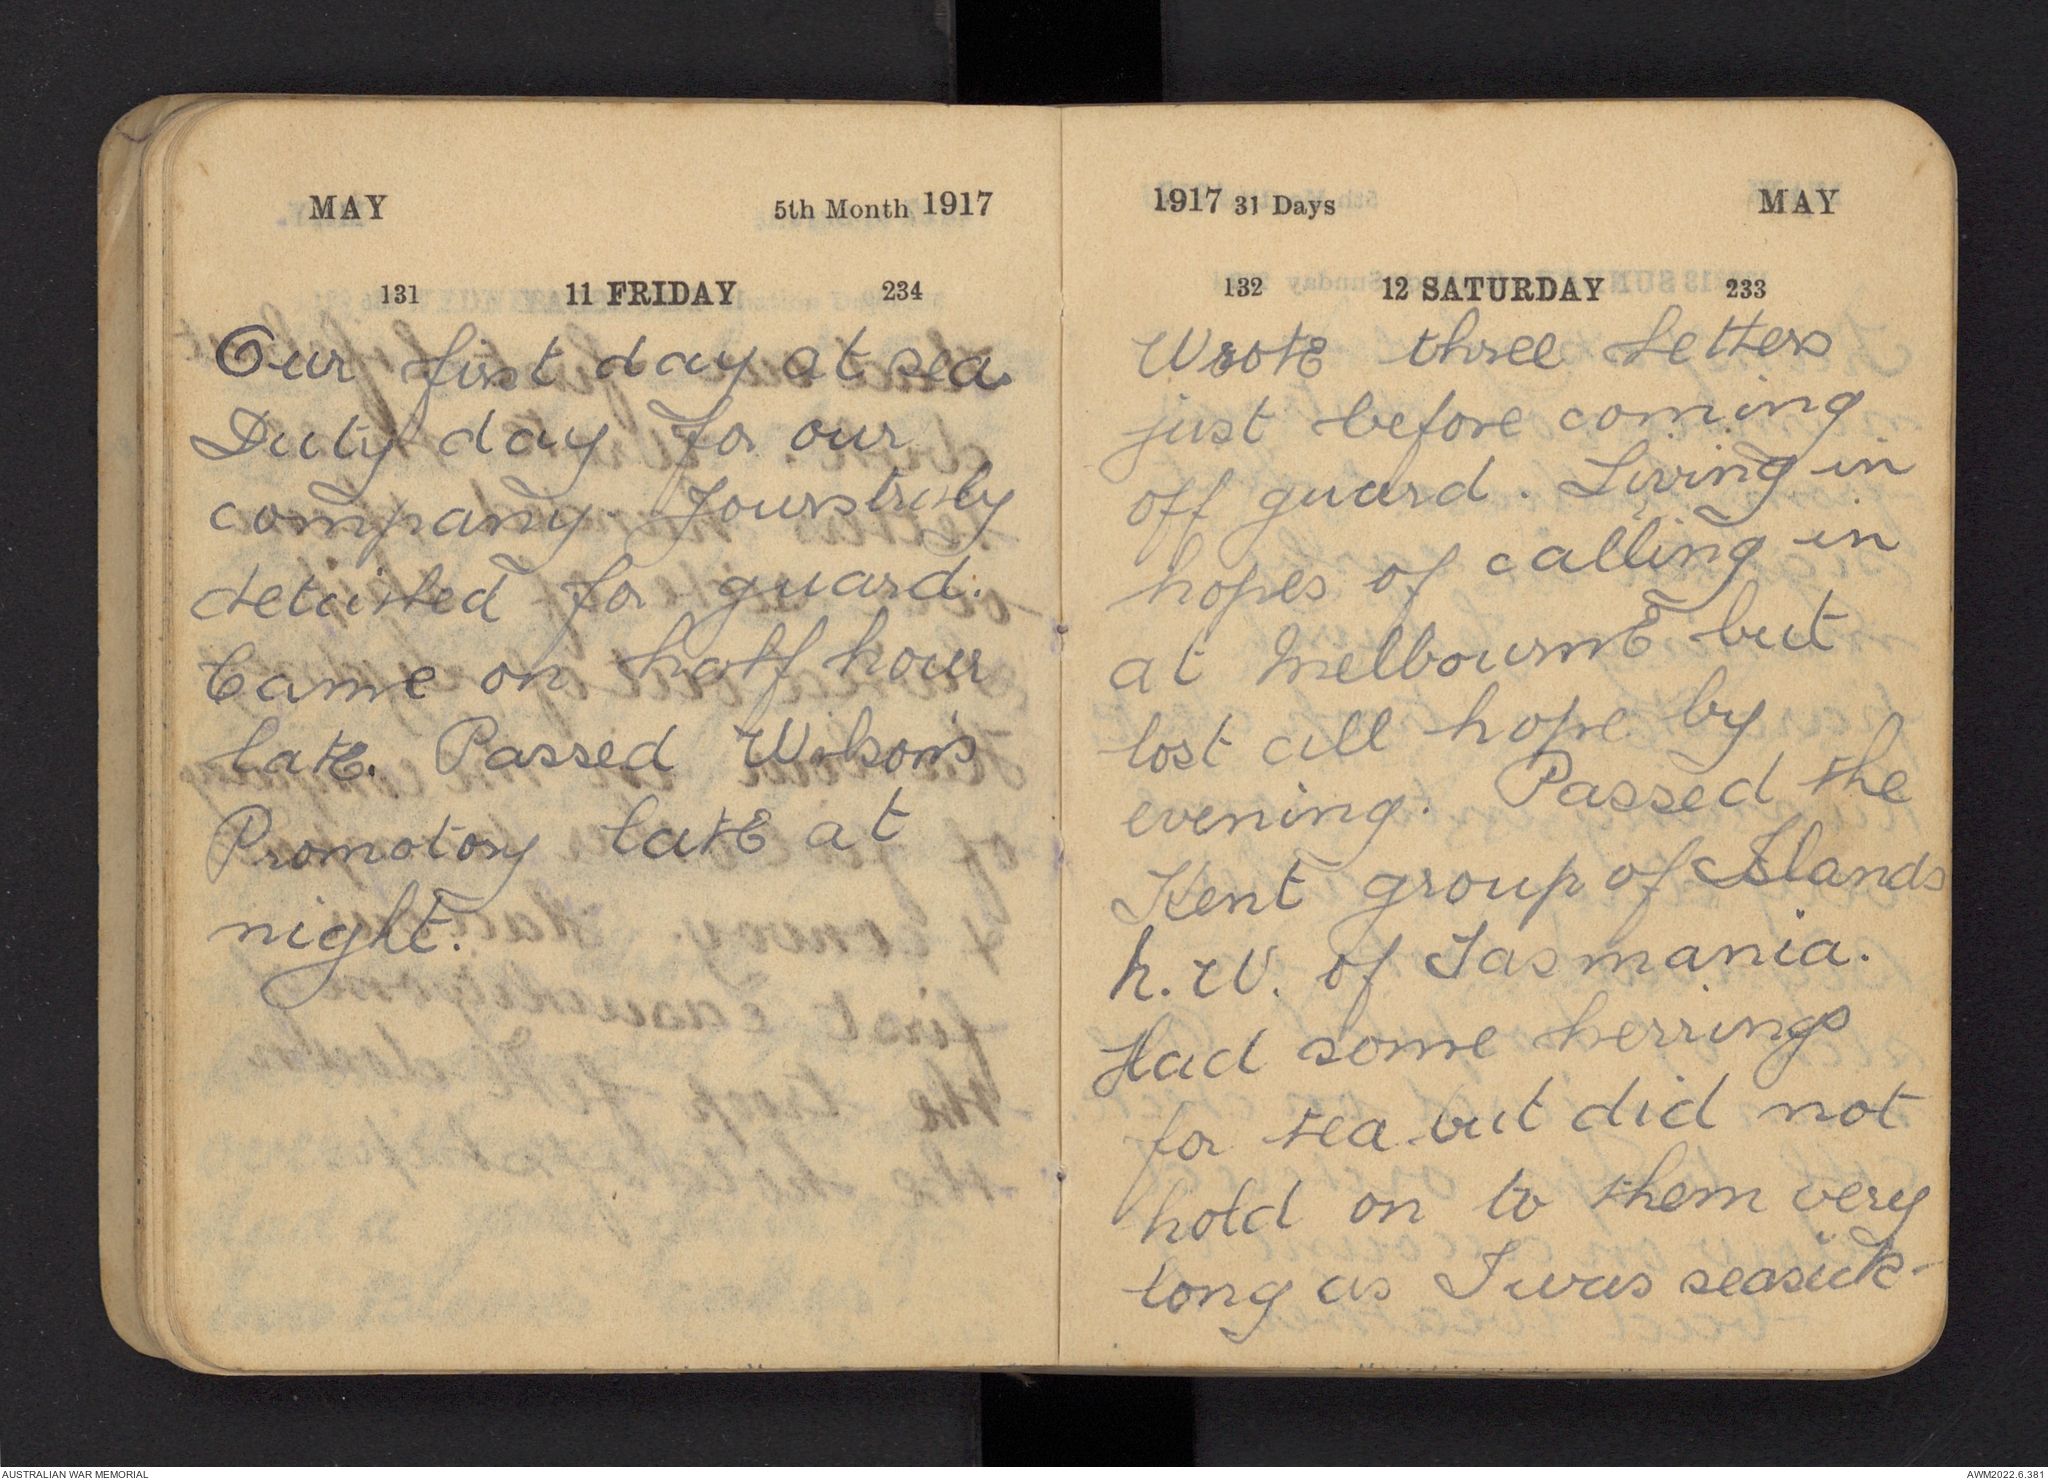 MAY 5th Month 1917
131 11 FRIDAY 234
Our first day at sea.
Duty day for our
company. Yourstruly
detailed for guard.
Came on half hour
late. Passed Wilson's
Promotory late at
night.
1917 31 Days MAY
132 12 SATURDAY 233
Wrote three letters
just before coming
off guard. Living in
hopes of calling in
at Melbourne but
lost all hope by
evening. Passed the
Kent group of Islands
N.W. of Tasmania.
Had some herrings
for tea but did not
hold on to them very
long as I was seasick-
AUSTRALIAN WAR MEMORIAL
AWM2022.6.381